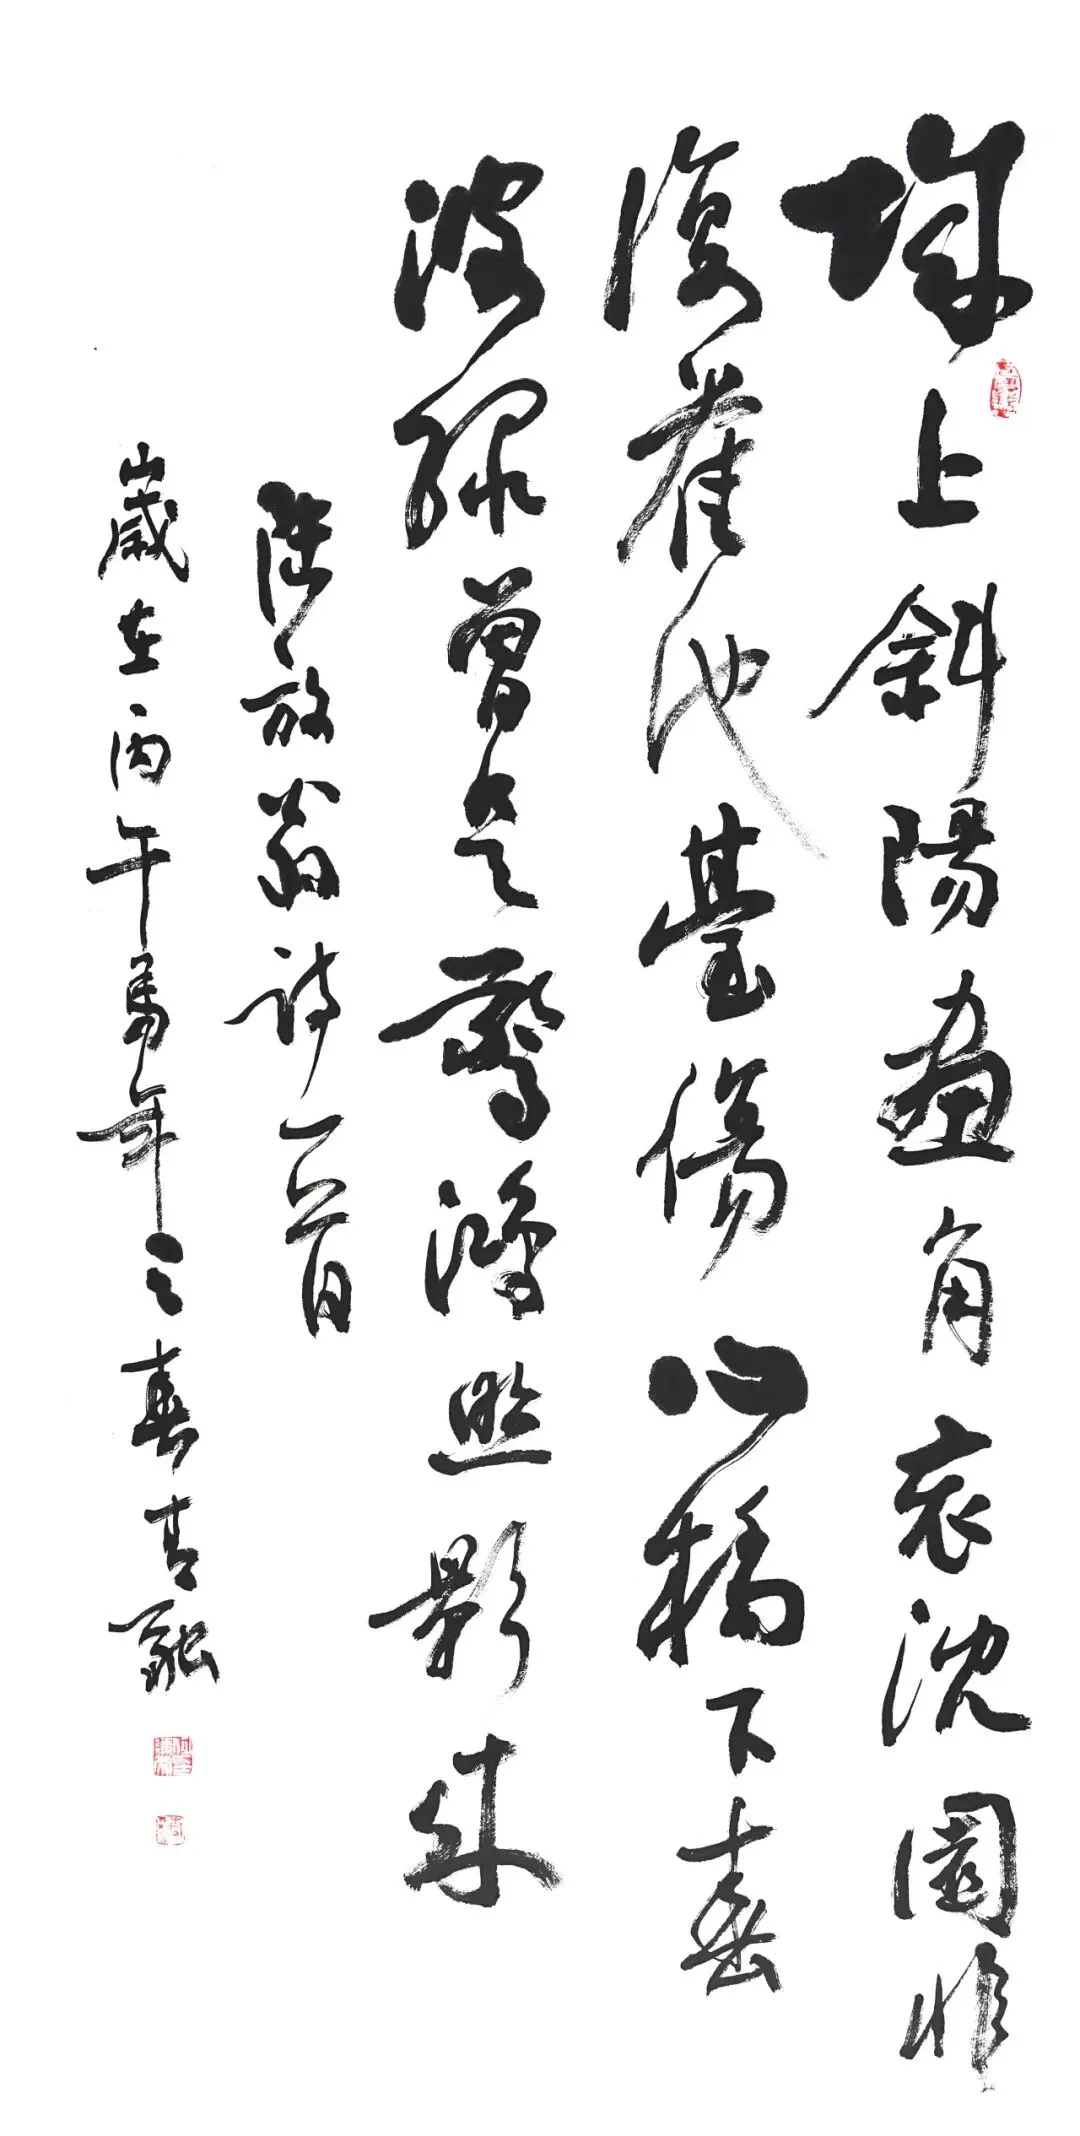 城上斜陽畫角哀沈園非
復舊池臺傷心橋下春
波綠曾是驚鴻照影來
陸放翁詩一首
歲在丙午馬年之春吉融